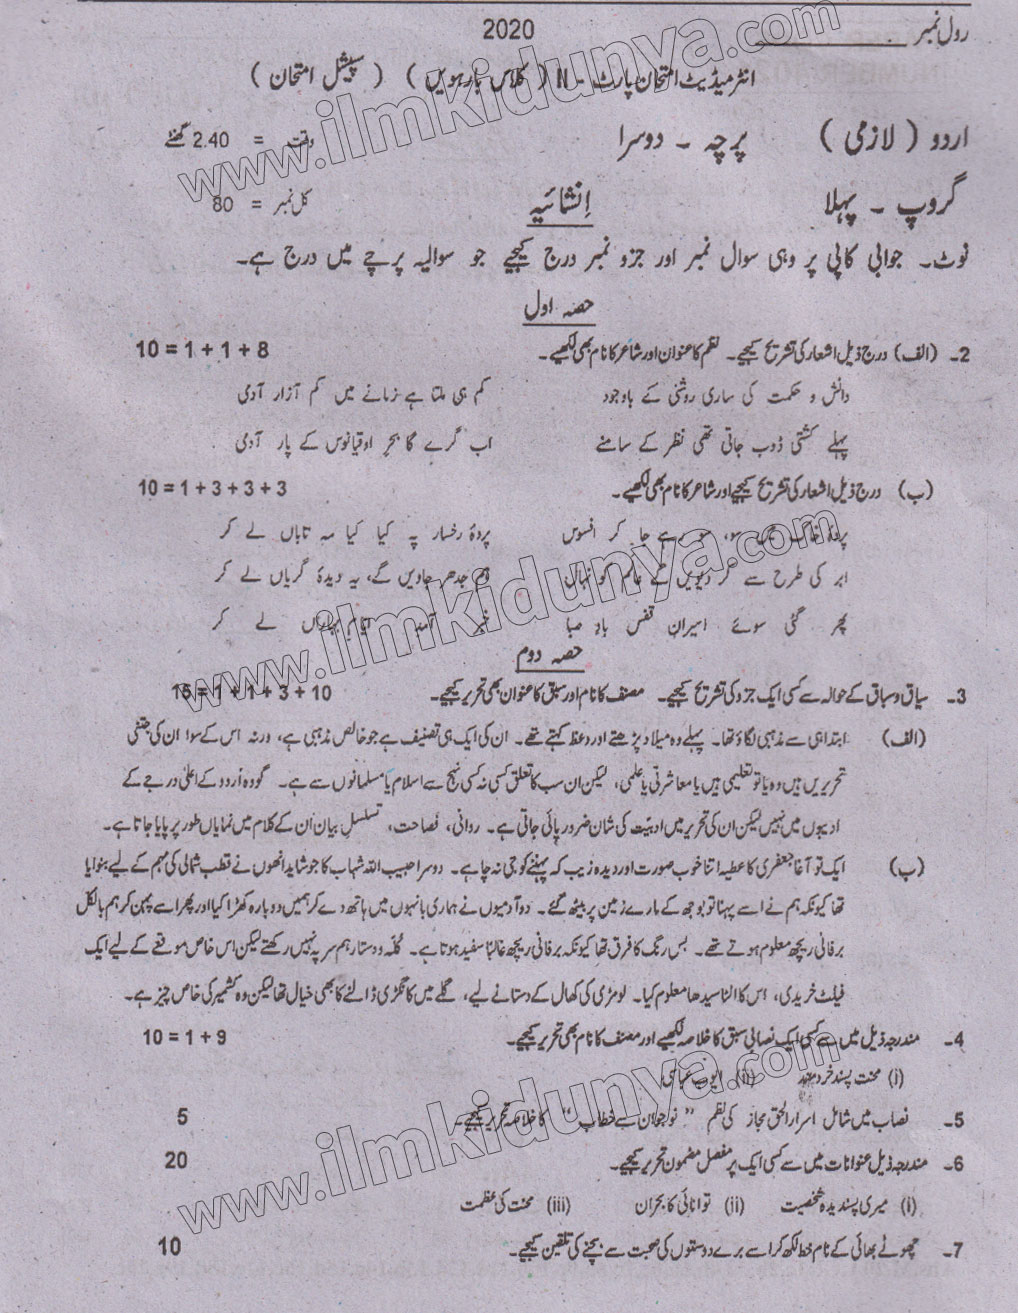 رول نمبر
2020
انٹرمیڈیٹ امتحان پارٹ - II ( کلاس بارہویں ) ( سپیشل امتحان )
اردو ( لازمی ) پرچہ ۔ دوسرا وقت = 2.40 گھنٹے
گروپ ۔ پہلا اِنشائیہ کل نمبر = 80
نوٹ۔ جوابی کاپی پر وہی سوال نمبر اور جزو نمبر درج کیجیے جو سوالیہ پرچے میں درج ہے۔
حصہ اول
2۔ (الف) درج ذیل اشعار کی تشریح کیجیے۔ نظم کا عنوان اور شاعر کا نام بھی لکھیے۔ 10 = 1 + 1 + 8
دانش و حکمت کی ساری روشنی کے باوجود کم ہی ملتا ہے زمانے میں کم آزار آدمی
پہلے کشتی ڈوب جاتی تھی نظر کے سامنے اب گرے گا بحرِ اوقیانوس کے پار آدمی
(ب) درج ذیل اشعار کی تشریح کیجیے اور شاعر کا نام بھی لکھیے۔ 10 = 1 + 3 + 3 + 3
پردۂ خاک میں سو، سو رہے جا کر افسوس پردۂ رخسار پہ کیا کیا مہ تاباں لے کر
ابر کی طرح سے کر دیویں گے عالم کو نہال ہم جدھر جاویں گے، یہ دیدۂ گریاں لے کر
پھر گئی سوئے اسیرانِ قفس بادِ صبا خبر آمد ایام بہاراں لے کر
حصہ دوم
3۔ سیاق و سباق کے حوالہ سے کسی ایک جزو کی تشریح کیجیے۔ مصنف کا نام اور سبق کا عنوان بھی تحریر کیجیے۔ 15 = 1 + 1 + 3 + 10
(الف) ابتدا ہی سے مذہبی لگاؤ تھا۔ پہلے وہ میلاد پڑھتے اور وعظ کہتے تھے۔ ان کی ایک ہی تصنیف ہے جو خالص مذہبی ہے، ورنہ اس کے سوا ان کی جتنی
تحریریں ہیں وہ یا تو تعلیمی ہیں یا معاشرتی یا علمی، لیکن ان سب کا تعلق کسی نہ کسی نہج سے اسلام یا مسلمانوں سے ہے۔ گو وہ اُردو کے اعلیٰ درجے کے
ادیبوں میں نہیں لیکن ان کی تحریر میں ادبیّت کی شان ضرور پائی جاتی ہے۔ روانی، فصاحت، تسلسلِ بیان اُن کے کلام میں نمایاں طور پر پایا جاتا ہے۔
(ب) ایک تو آغا جعفری کا عطیہ اتنا خوب صورت اور دیدہ زیب کہ پہننے کو جی نہ چاہے۔ دوسرا حبیب اللہ شہاب کا جو شاید انھوں نے قطب شمالی کی مہم کے لیے بنوایا
تھا کیونکہ ہم نے اسے پہنا تو بوجھ کے مارے زمین پر بیٹھ گئے۔ دو آدمیوں نے ہماری بانہوں میں ہاتھ دے کر ہمیں دوبارہ کھڑا کیا اور پھر اسے پہن کر ہم بالکل
برفانی ریچھ معلوم ہوتے تھے۔ بس رنگ کا فرق تھا کیونکہ برفانی ریچھ غالباً سفید ہوتا ہے۔ کُلہ و دستار ہم سر پہ نہیں رکھتے لیکن اس خاص موقعے کے لیے ایک
فیلٹ خریدی، اس کا الٹا سیدھا معلوم کیا۔ لومڑی کی کھال کے دستانے لیے، گلے میں کانگڑی ڈالنے کا بھی خیال تھا لیکن وہ کشمیر کی خاص چیز ہے۔
4۔ مندرجہ ذیل میں سے کسی ایک نصابی سبق کا خلاصہ لکھیے اور مصنف کا نام بھی تحریر کیجیے۔ 10 = 1 + 9
(i) محنت پسند خرد مند (ii) ایوب عباسی
5۔ نصاب میں شامل اسرار الحق مجاز کی نظم " نوجوان سے خطاب " کا خلاصہ تحریر کیجیے۔ 5
6۔ مندرجہ ذیل عنوانات میں سے کسی ایک پر مفصل مضمون تحریر کیجیے۔ 20
(i) میری پسندیدہ شخصیت (ii) توانائی کا بحران (iii) محنت کی عظمت
7۔ چھوٹے بھائی کے نام خط لکھ کر اسے برے دوستوں کی صحبت سے بچنے کی تلقین کیجیے۔ 10
www.ilmkidunya.com
www.ilmkidunya.com
www.ilmkidunya.com